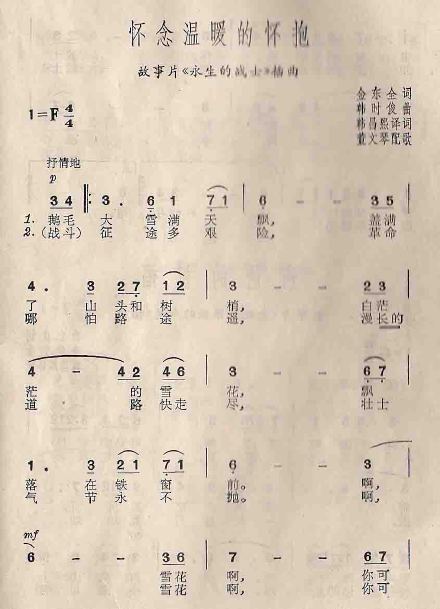 怀念温暖的怀抱
故事片《永生的战士》插曲
金东全词
韩时俊曲
韩昌熙译词
董文琴配歌
1=F 4/4
抒情地
p
3 4 ‖: 3. 6 1 7 1 | 6 - - 3 5 |
1. 鹅毛 大 雪满 天 飘, 盖满
2. (战斗) 征 途多 艰 险, 革命
4. 3 2 7 1 2 | 3 - - 2 3 |
了 山 头和 树 梢, 白茫
哪 怕 路 途 遥, 漫长的
4 - 4 2 4 6 | 3 - - 6 7 |
茫 的 雪 花, 飘
道 路 快走 尽, 壮士
1. 3 2 1 7 1 | 6 - - 3 |
落 在 铁 窗 前。 啊,
气 节 永 不 抛。 啊,
mf
6 - - 3 6 | 7 - - 6 7 |
雪花 啊, 你可
雪花 啊, 你可